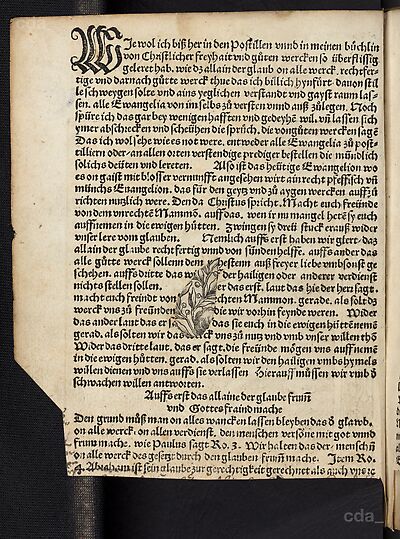 WJe wol ich bißher in den Postillen vnnd in meinen büchlin
von Christlicher freyhait vnd gůten wercken so überflissig
geleret hab, wie dz allain der glaub on alle werck, rechtfer-
tige vnd darnach gůtte werck thue das ich billich hynfürt, dauon stil
le schweygen solte vnd ains yeglichen verstand vnd gayst raum las-
sen, alle Ewangelia von im selbs zů versten vnnd auß zůlegen. Noch
spüre ich das gar bey wenigen hafften vnd gedeyhē wil, vñ lassen sich
ymer abschrecken vnd scheühen die sprüch, die von gůten wercken sagē
Das ich wol sehe wie es not were, entweder alle Ewangelia zů post-
tilliern oder an allen orten verstendige prediger bestellen die mündlich
solichs deüten vnd lereten. Also ist das heütige Ewangelion wo
es on gaist mit blosser vernunfft angesehen wirt ain recht pfeffisch vñ
münchs Euangelion, das für den geytz vnd zů aygen wercken auffzů
richten nutzlich were. Den da Christus spricht. Macht euch freünde
von dem vnrechtē Mammō, auff das, wen ir nu mangel hetē sy euch
auffnemen in die ewigen hütten. Zwingen sy drei stuck erauß wider
vnser lere vom glauben. Nemlich auffs erst haben wir glert, daz
allain der glaube rechtfertig vnnd von sünden helffe. auffs ander das
alle gůtt werck sollen dem nehstem auß freyer liebe vmb sonst ge
schehen. auffs dritte das w der hailigen oder anderer verdienst
nichts stellen sollen. der erst, laut das hie der herr sagt,
macht euch freindt von chten Mammon. gerade, als solt dz
werck vns zů freünden die wir vorhin feynde weren. Wider
das ander laut das er das sie euch in die ewigen hüttē nemē
gerad, als solten wir das werck vns zů nutz vnd vmb vnser willen thō
Wider das dritte laut, das er sagt, die freünde mögen vns auffnemē
in die ewigen hütten, gerad, als solten wir den hailigen vmbs hymels
willen dienen vnd vns auff sie verlassen Hierauff müssen wir vmb ð
schwachen willen antworten.
Auffs erst das allaine der glaube frum̄
vnd Gottes fraind mache
Den grund můß man on alles wancken lassen bleyben das ð glawb,
on alle werck, on allen verdienst, den menschen versöne mit got vnnd
frum̄ mache, wie Paulus sagt Ro. 3. Wir halten das der, menschñ
on alle werck des gesetz durch den glauben frum̄ mache. Item Ro.
4. Abraham ist sein glaube zur gerechtigkeit gerechnet als auch vns ꝛc
cda_